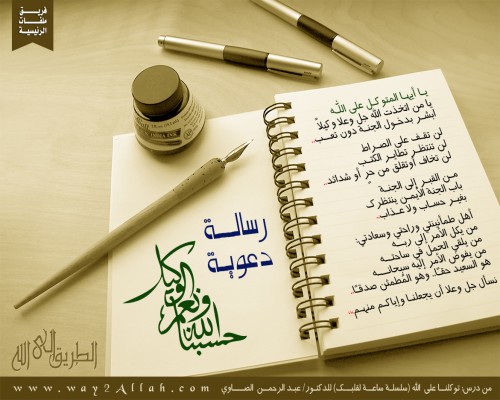 فريق
ملفات
الرئيسية
يا أيها المتوكل على الله
يا من اتخذت الله جل وعلا وكيلاً
أبشر بدخول الجنة دون تعب..
لن تقف على الصراط
لن تنتظر تطاير الكتب
لن تخاف أو تقلق من حر أو شدائد..
من القبر إلى الجنة
باب الجنة الأيمن ينتظرك
بغير حساب ولا عذاب..
أهل طمأنينتي وراحتي وسعادتي:
من يكل الأمر إلى ربه
من يلقي الحمل في ساحته
من يفوض الأمر إليه سبحانه
هو السعيد حقًا، وهو المُطمئن صدقًا.
نسأل جل وعلا أن يجعلنا وإياكم منهم...
رسالة
دعوية
حسبنا الله ونعم الوكيل
الطريق إلى الله
من درس: توكلنا على الله (سلسلة ساعة لقلبك) للدكتور/ عبد الرحمن الصاوي
www.way2Allah.com